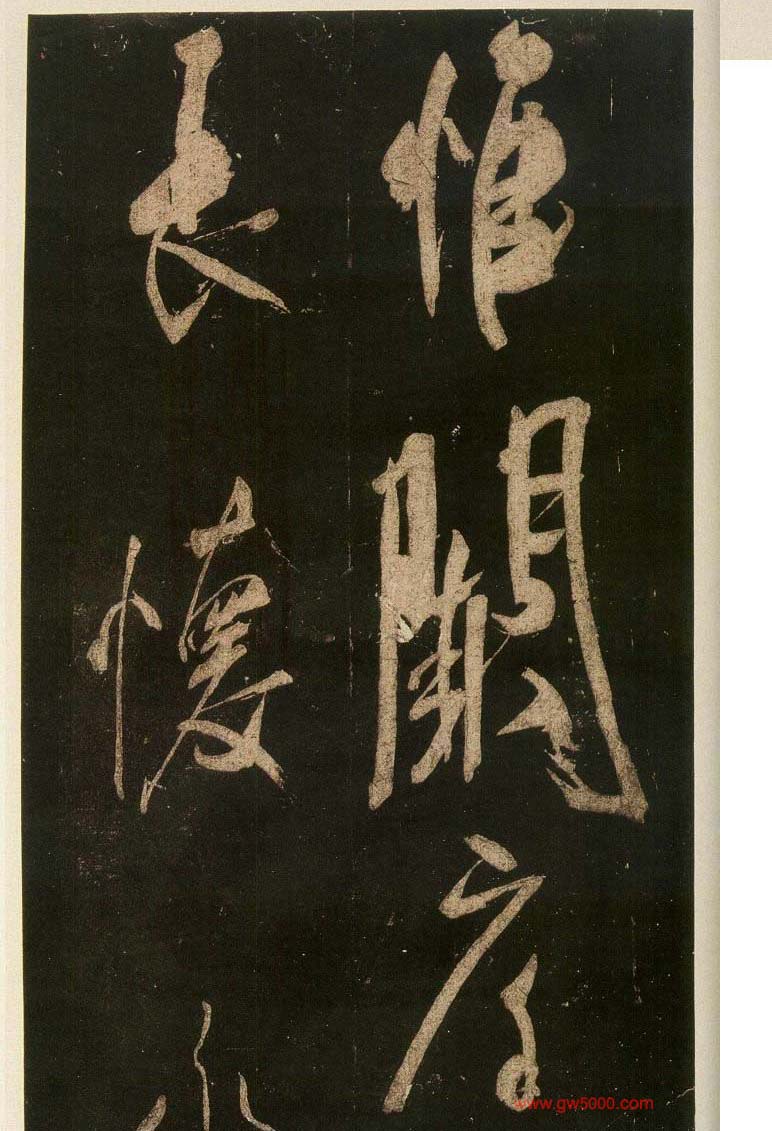 惟闕
長懷
www.gw5000.com